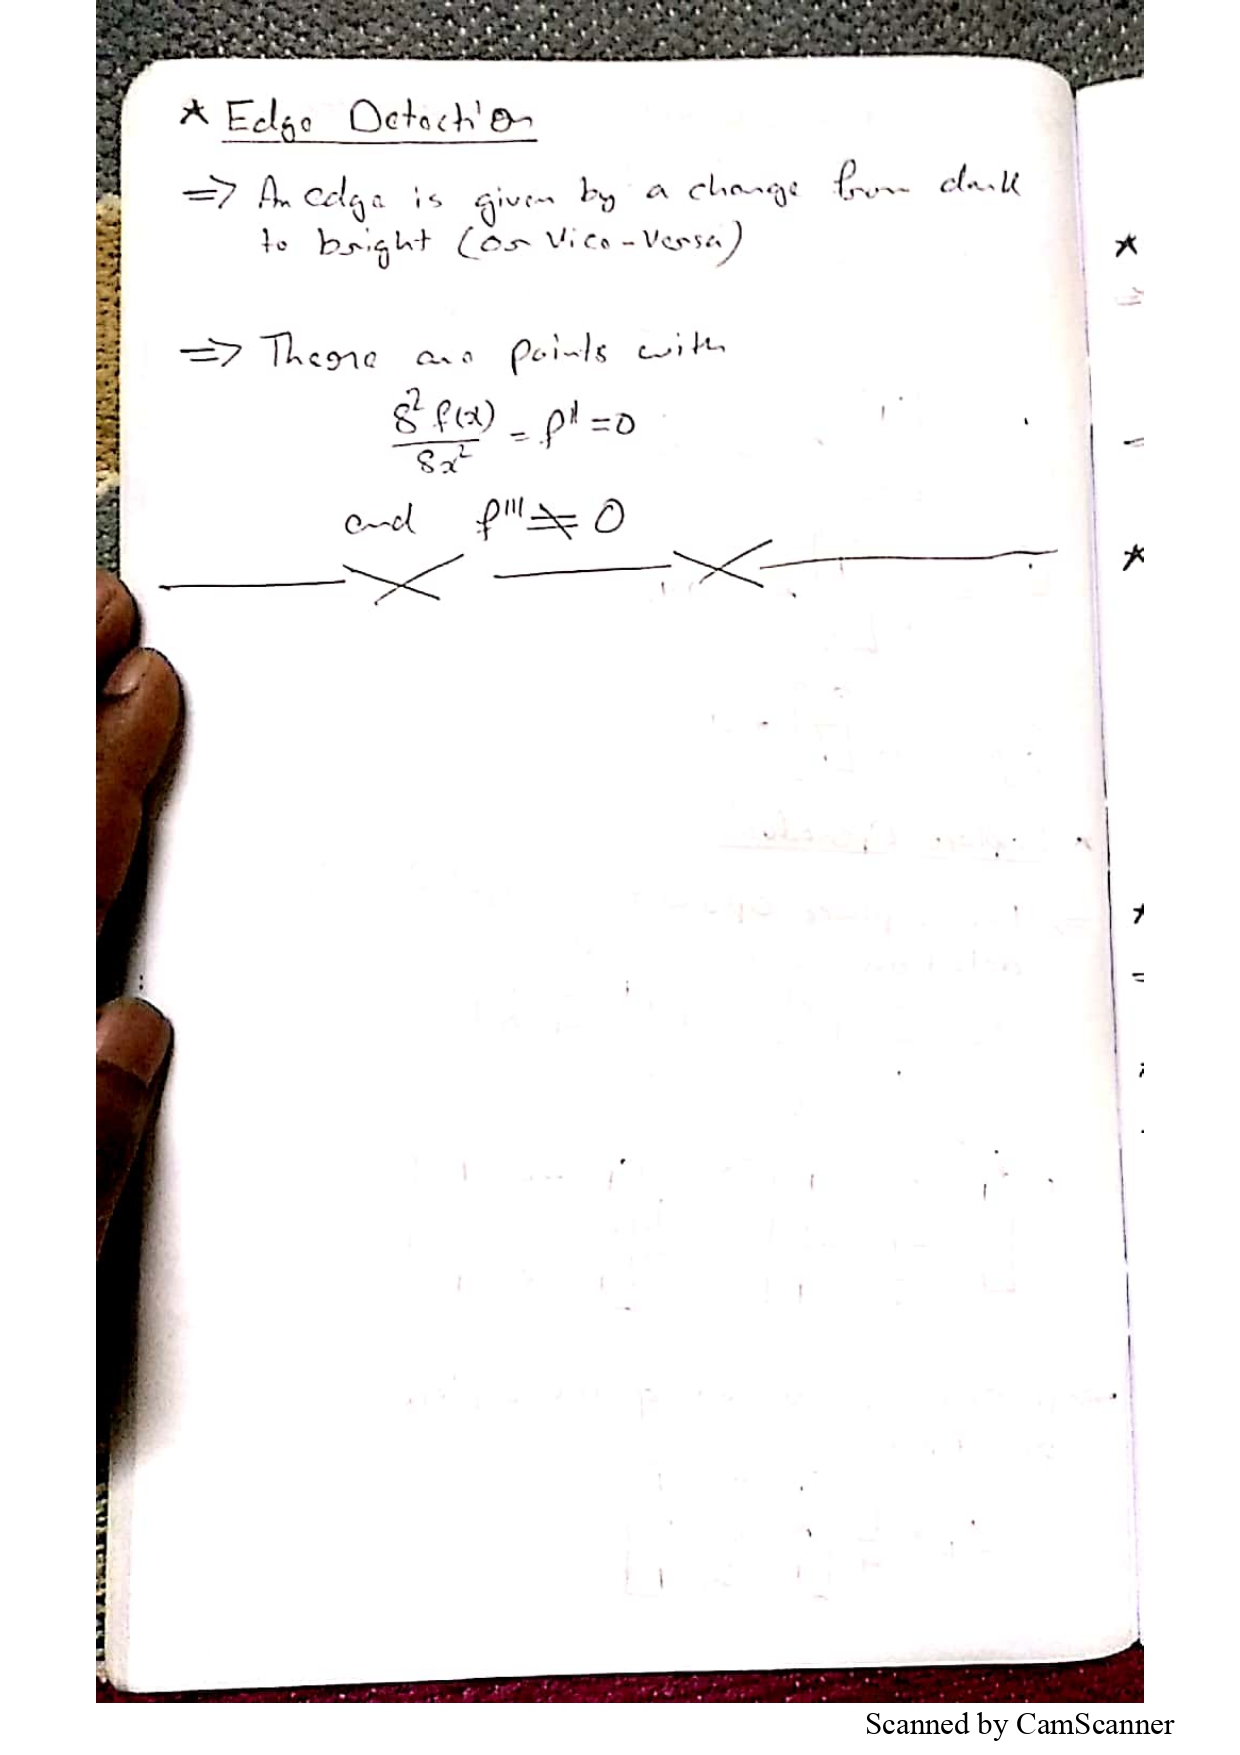 ★ Edge Detection
⇒ An edge is given by a change from dark
to bright (or Vice-Versa)
⇒ There are points with
δ² f(x) / δx² = f'' = 0
and f''' ≠ 0
Scanned by CamScanner